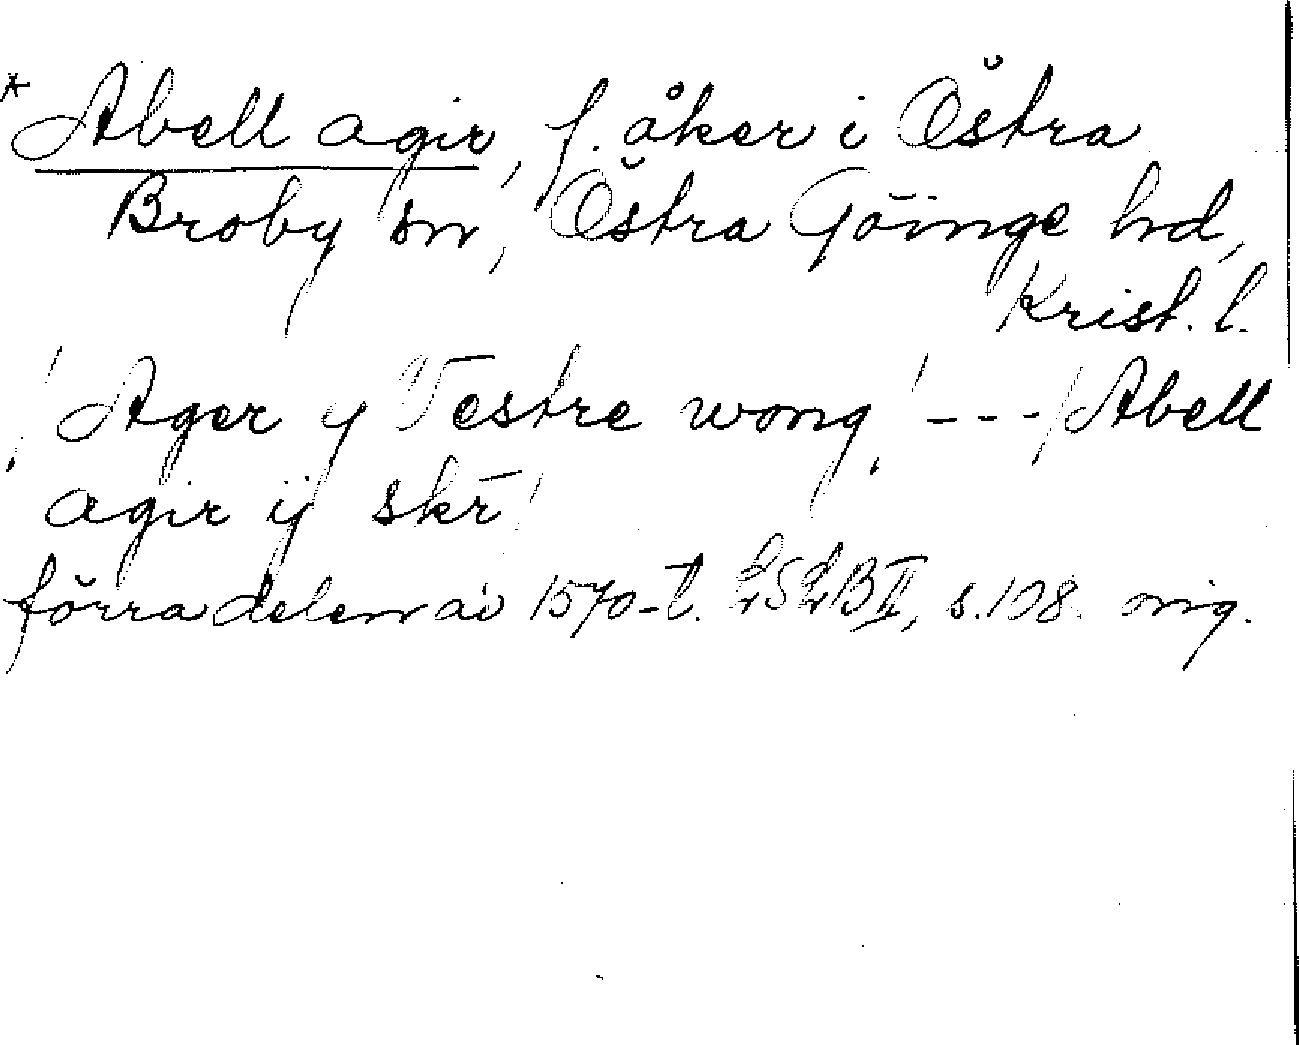 * Abell agir, f. åker i Östra
Broby sn, Östra Göinge hd,
Krist. l.
Ager y Vestre wong, --- / Abell
agir ij skr̄
förra delen av 1570-t. LSLB II, s. 108. orig.